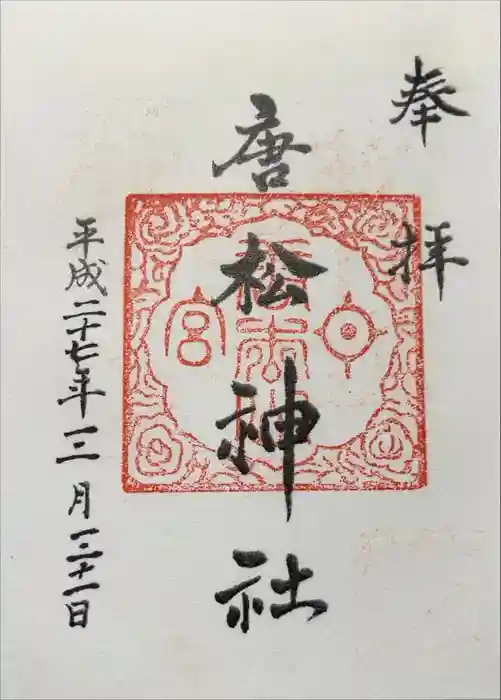 奉拝
唐松神社
平成二十七年三月三十一日